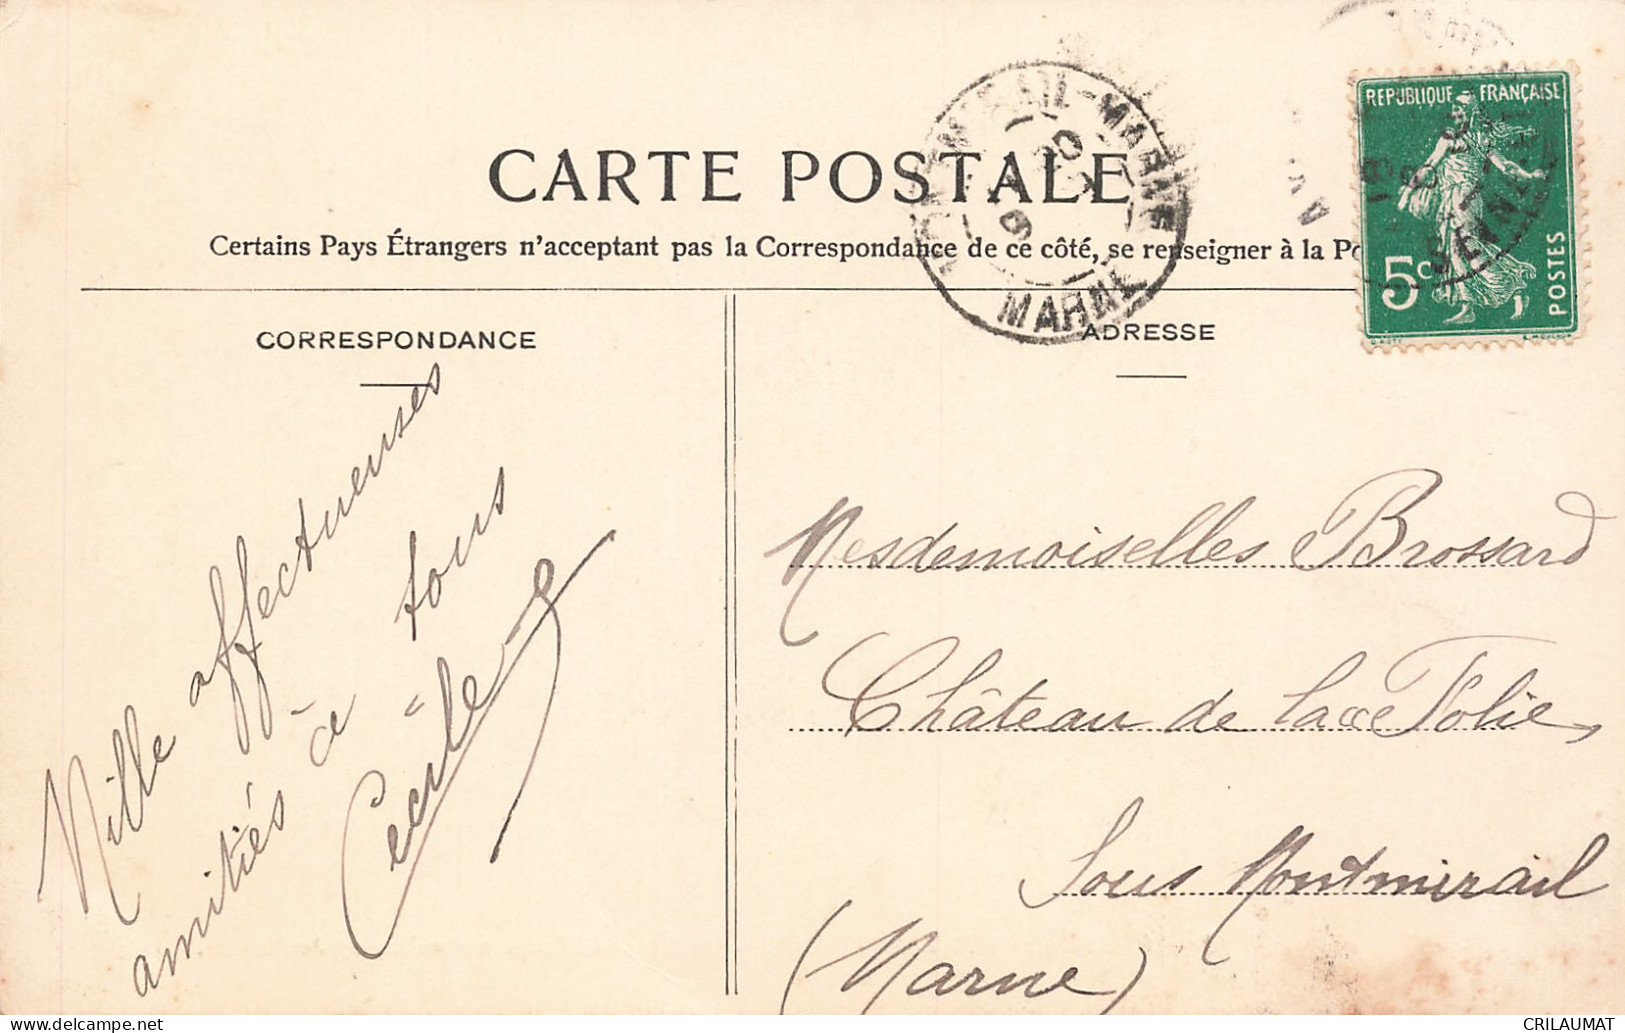 CARTE POSTALE
Certains Pays Étrangers n'acceptant pas la Correspondance de ce côté, se renseigner à la Po
CORRESPONDANCE
ADRESSE
REPUBLIQUE FRANÇAISE
5c
POSTES
MONTMIRAIL-MARNE
MARNE
Mille affectueuses
amitiés à tous
Cécile
Mesdemoiselles Brossard
Château de la Folie,
Sous Montmirail
(Marne)
CRILAUMAT